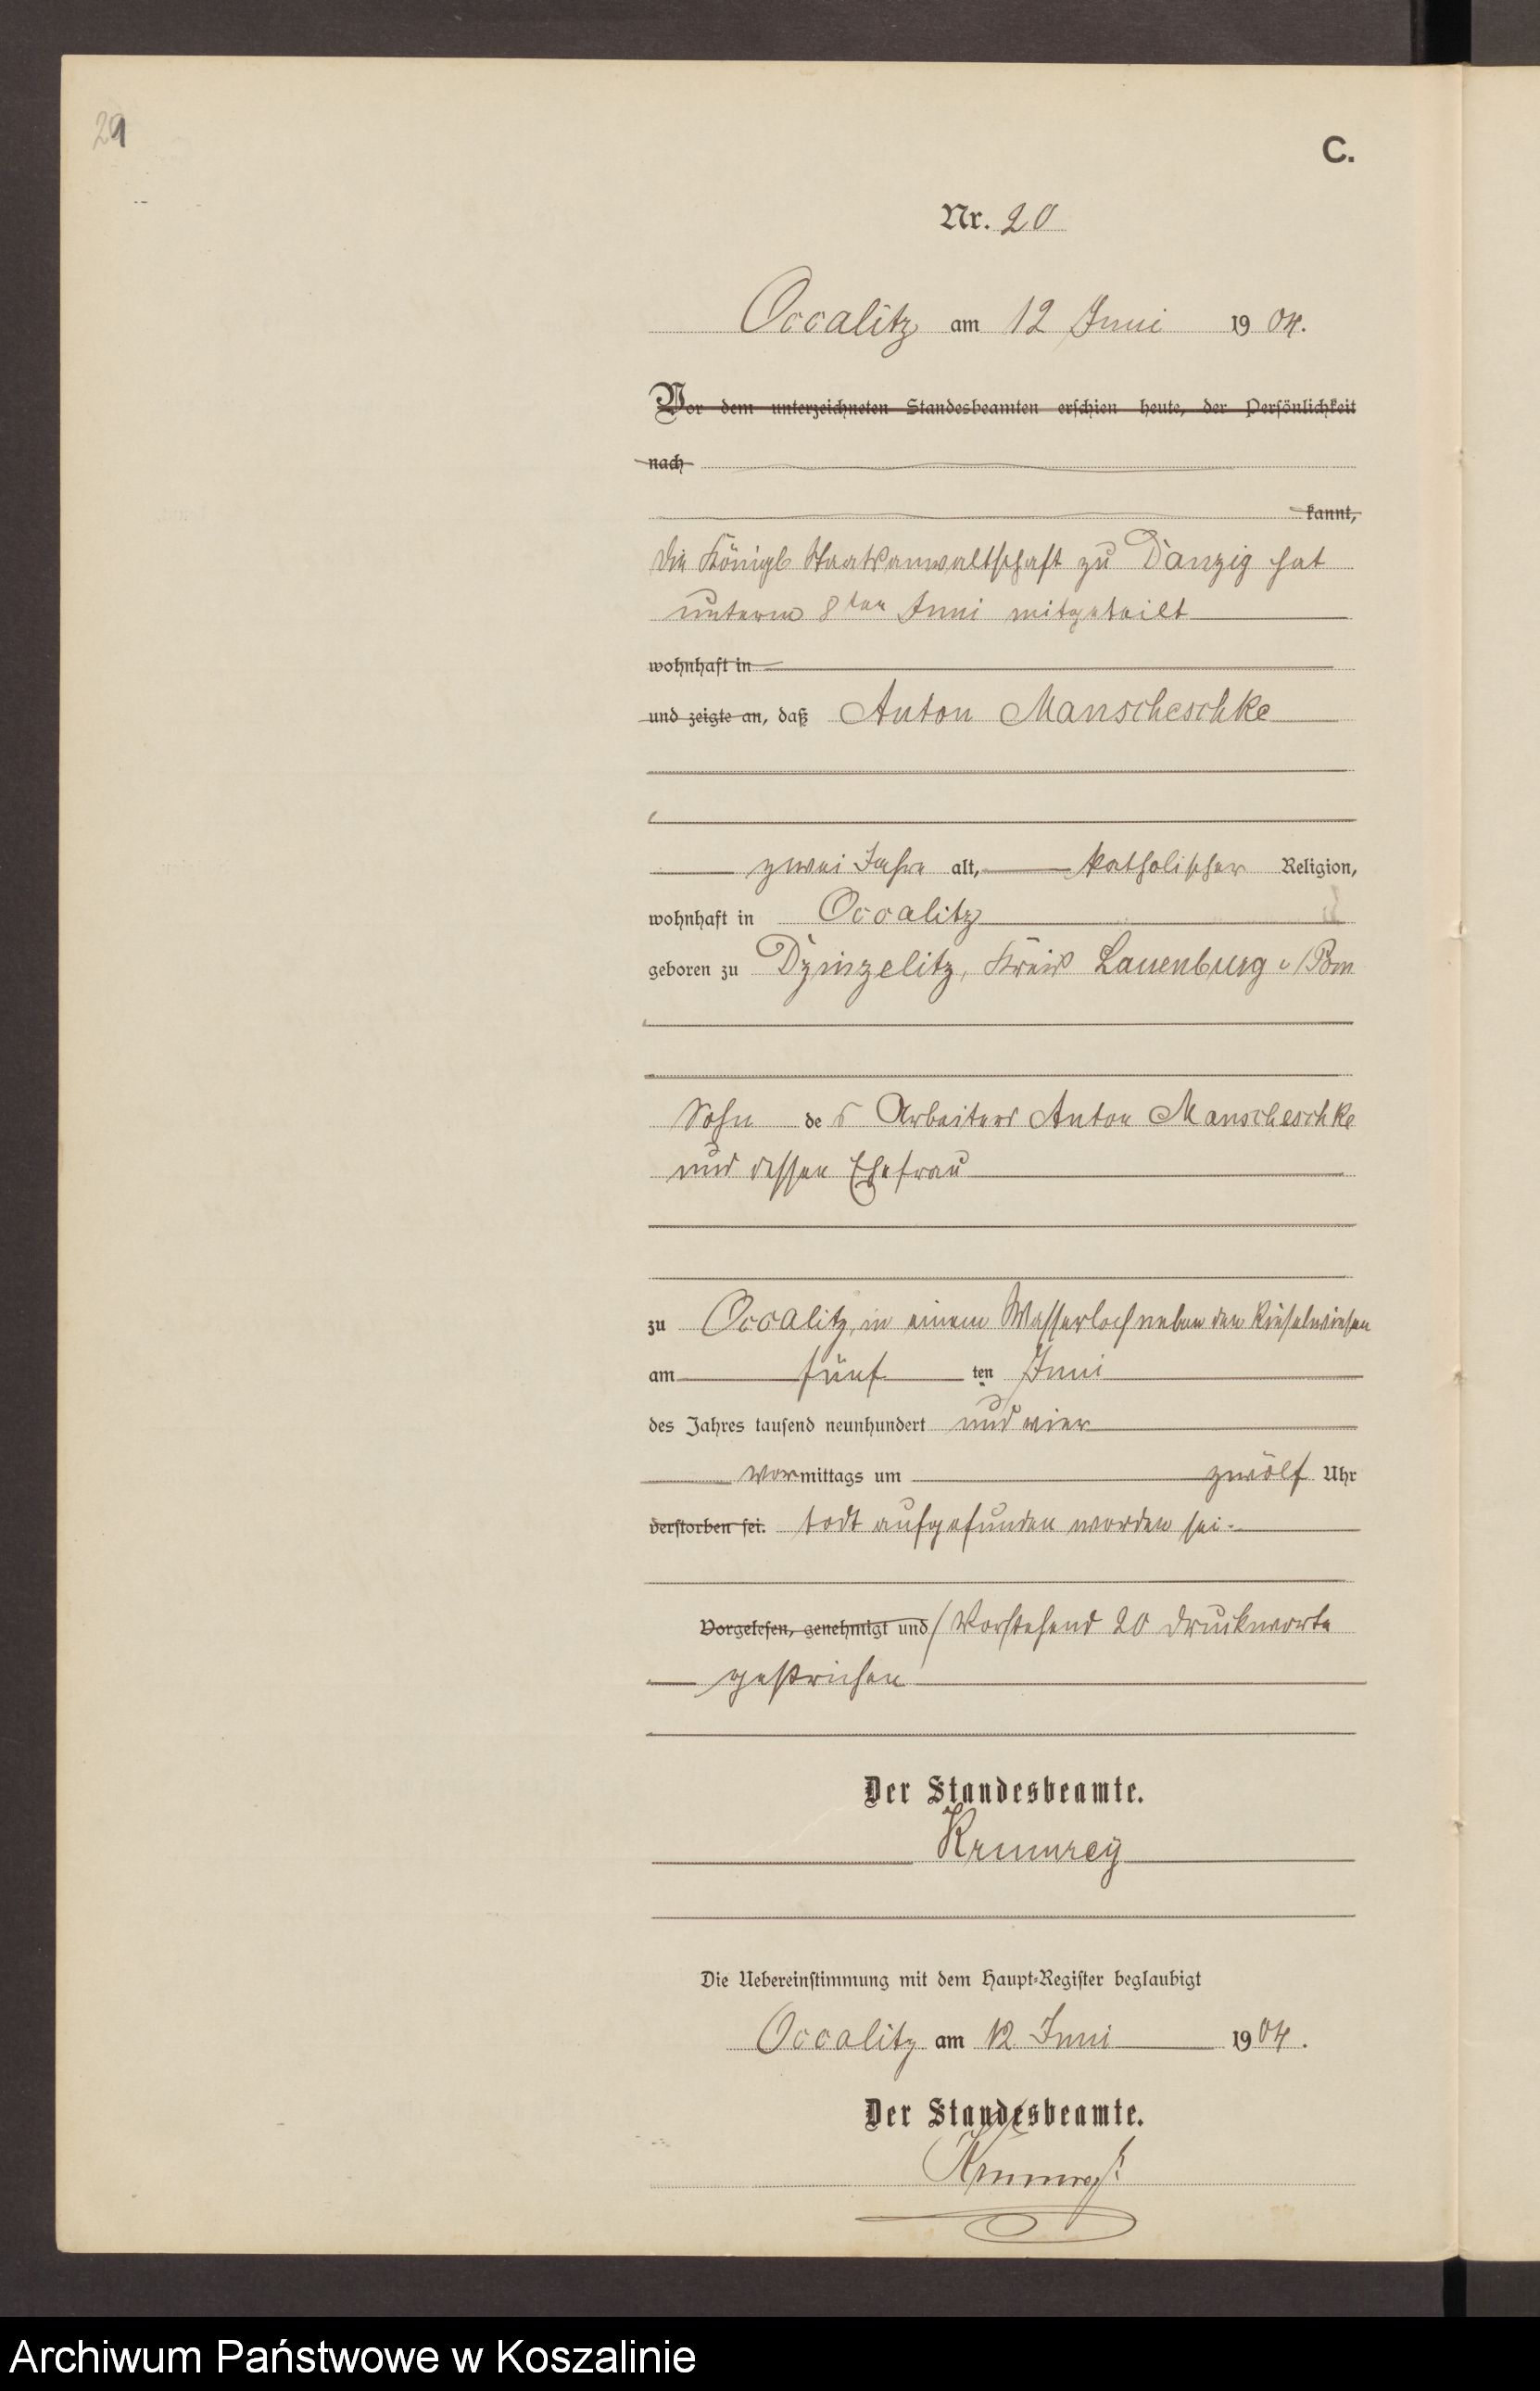 29
C.
Nr. 20
Occalitz am 12 Juni 1904.
Vor dem unterzeichneten Standesbeamten erschien heute, der Persönlichkeit
nach
kannt,
die Königl Staatsanwaltschaft zu Danzig hat
unterm 8ten Juni mitgeteilt
wohnhaft in
und zeigte an, daß Anton Manscheschke
zwei Jahre alt, katholischer Religion,
wohnhaft in Occalitz
geboren zu Dzinzelitz, Kreis Lauenburg i/Pom
Sohn des Arbeiters Anton Manscheschke
und dessen Ehefrau
zu Occalitz, in einem Wasserloch neben den Rieselwiesen
am fünf ten Juni
des Jahres tausend neunhundert und vier
vormittags um zwölf Uhr
verstorben sei. todt aufgefunden worden sei.
Vorgelesen, genehmigt und / Vorstehend 20 Druckworte
gestrichen
Der Standesbeamte.
Krumrey
Die Uebereinstimmung mit dem Haupt-Register beglaubigt
Occalitz am 12 Juni 1904.
Der Standesbeamte.
Krumrey
Archiwum Państwowe w Koszalinie